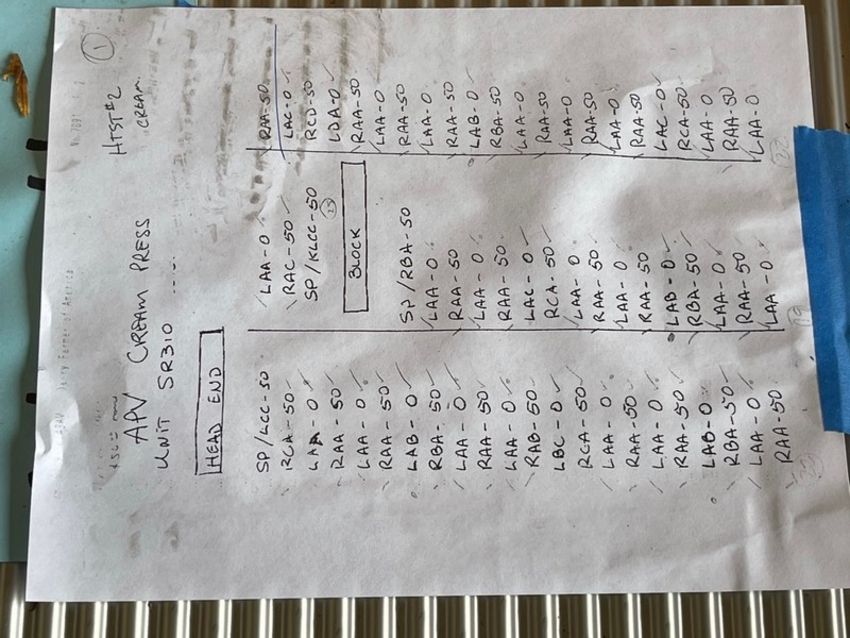 ①
HTST#2
CREAM.
APV CREAM PRESS
UNIT SR310
HEAD END
SP/LCC-50
RCA-50
LAA-0
RAA-50
LAA-0
RAA-50
LAB-0
RBA-50
LAA-0
RAA-50
LAA-0
RAB-50
LBC-0
RCA-50
LAA-0
RAA-50
LAA-0
RAA-50
LAB-0
RBA-50
LAA-0
RAA-50
LAA-0
RAC-50
SP/KLCC-50
23
BLOCK
SP/RBA-50
LAA-0
RAA-50
LAA-0
RAA-50
LAC-0
RCA-50
LAA-0
RAA-50
LAA-0
RAA-50
LAB-0
RBA-50
LAA-0
RAA-50
LAA-0
19
RAA-50
LAC-0
RCD-50
LDA-0
RAA-50
LAA-0
RAA-50
LAA-0
RAA-50
LAB-0
RBA-50
LAA-0
RAA-50
LAA-0
RAA-50
LAA-0
RAA-50
LAC-0
RCA-50
LAA-0
RAA-50
LAA-0
22